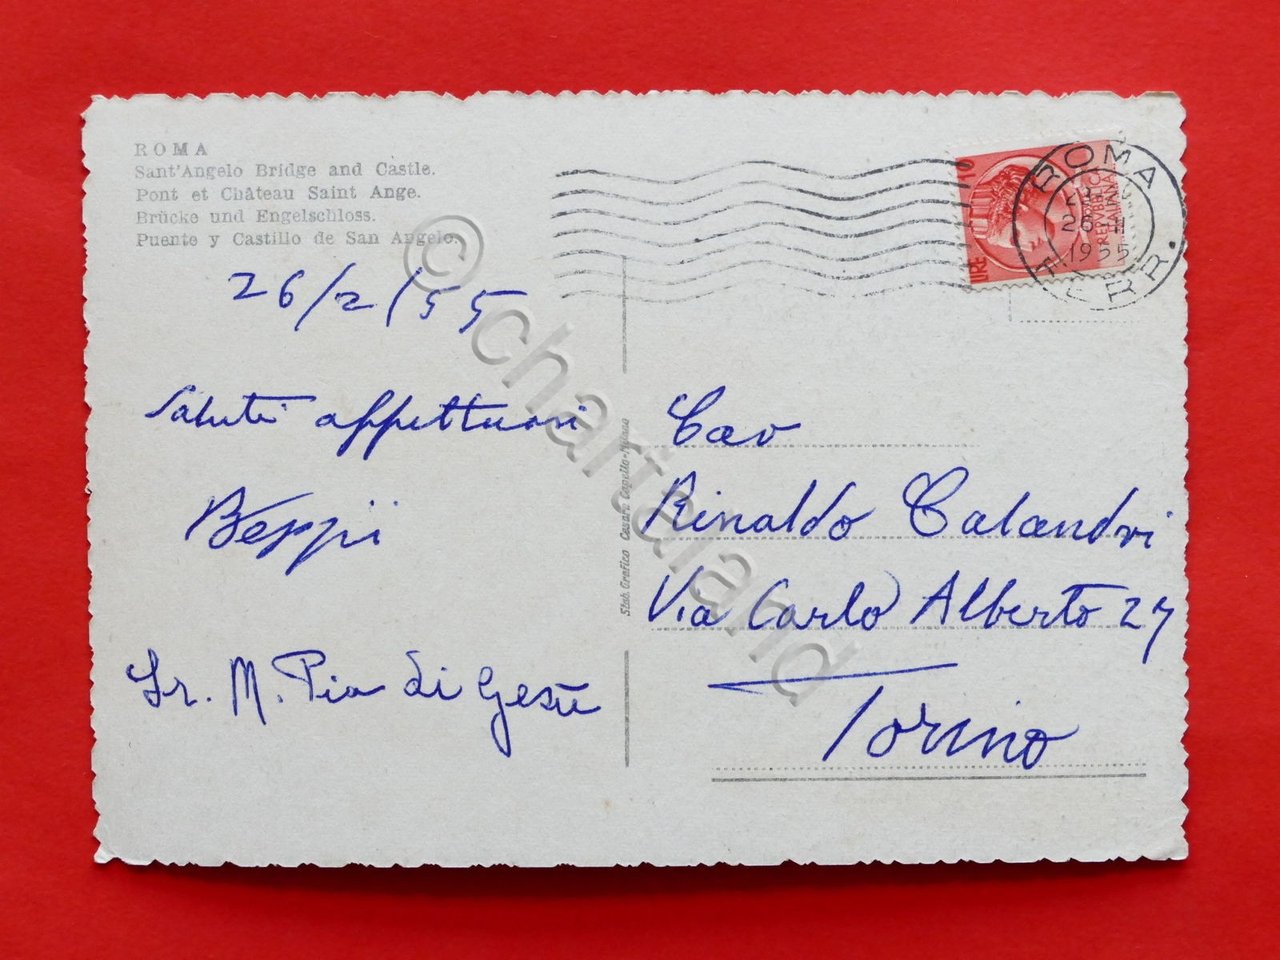 ROMA
Sant'Angelo Bridge and Castle.
Pont et Château Saint Ange.
Brücke und Engelschloss.
Puente y Castillo de San Angelo.
26/2/55
Saluti affettuosi
Beppi
Sr. M. Pia di Gesù
Stab. Grafico Cesare Capello-Milano
ROMA
26 II
1955
FERR.
LIRE 10
REPVBBLICA
ITALIANA
Cav
Rinaldo Calandri
Via Carlo Alberto 27
Torino
© chartaland